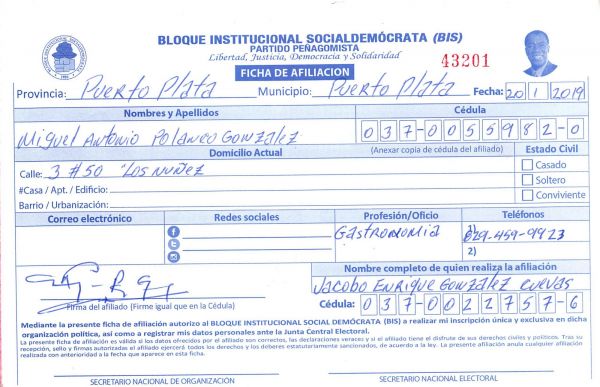 BLOQUE INSTITUCIONAL SOCIALDEMÓCRATA (BIS)
PARTIDO PEÑAGOMISTA
Libertad, Justicia, Democracia y Solidaridad
43201
FICHA DE AFILIACION
Provincia: Puerto Plata Municipio: Puerto Plata Fecha: 20 1 2019
Nombres y Apellidos
Cédula
Miguel Antonio Polanco González
037-0055982-0
Domicilio Actual
(Anexar copia de cédula del afiliado)
Estado Civil
Calle: 3 #50 "Los Nuñez
Casado
#Casa / Apt. / Edificio:
Soltero
Barrio / Urbanización:
Conviviente
Correo electrónico
Redes sociales
Profesión/Oficio
Teléfonos
Gastronomia
1) 829-459-9923
2)
Nombre completo de quien realiza la afiliación
Jacobo Enrique González Cuevas
Firma del afiliado (Firme igual que en la Cédula)
Cédula: 037-0022757-6
Mediante la presente ficha de afiliación autorizo al BLOQUE INSTITUCIONAL SOCIAL DEMÓCRATA (BIS) a realizar mi inscripción única y exclusiva en dicha
organización política, así como a registrar mis datos personales ante la Junta Central Electoral.
La presente ficha de afiliación es válida si los datos ofrecidos por el afiliado son correctos, las declaraciones veraces y si el afiliado tiene el disfrute de sus derechos civiles y políticos. Tras su
recepción, sello y firmas autorizadas el afiliado ejercerá todos los derechos y los deberes estatutariamente sancionados, de acuerdo a la ley. La presente afiliación anula cualquier afiliación
realizada con anterioridad a la fecha que aparece en esta ficha.
SECRETARIO NACIONAL DE ORGANIZACIÓN
SECRETARIO NACIONAL ELECTORAL